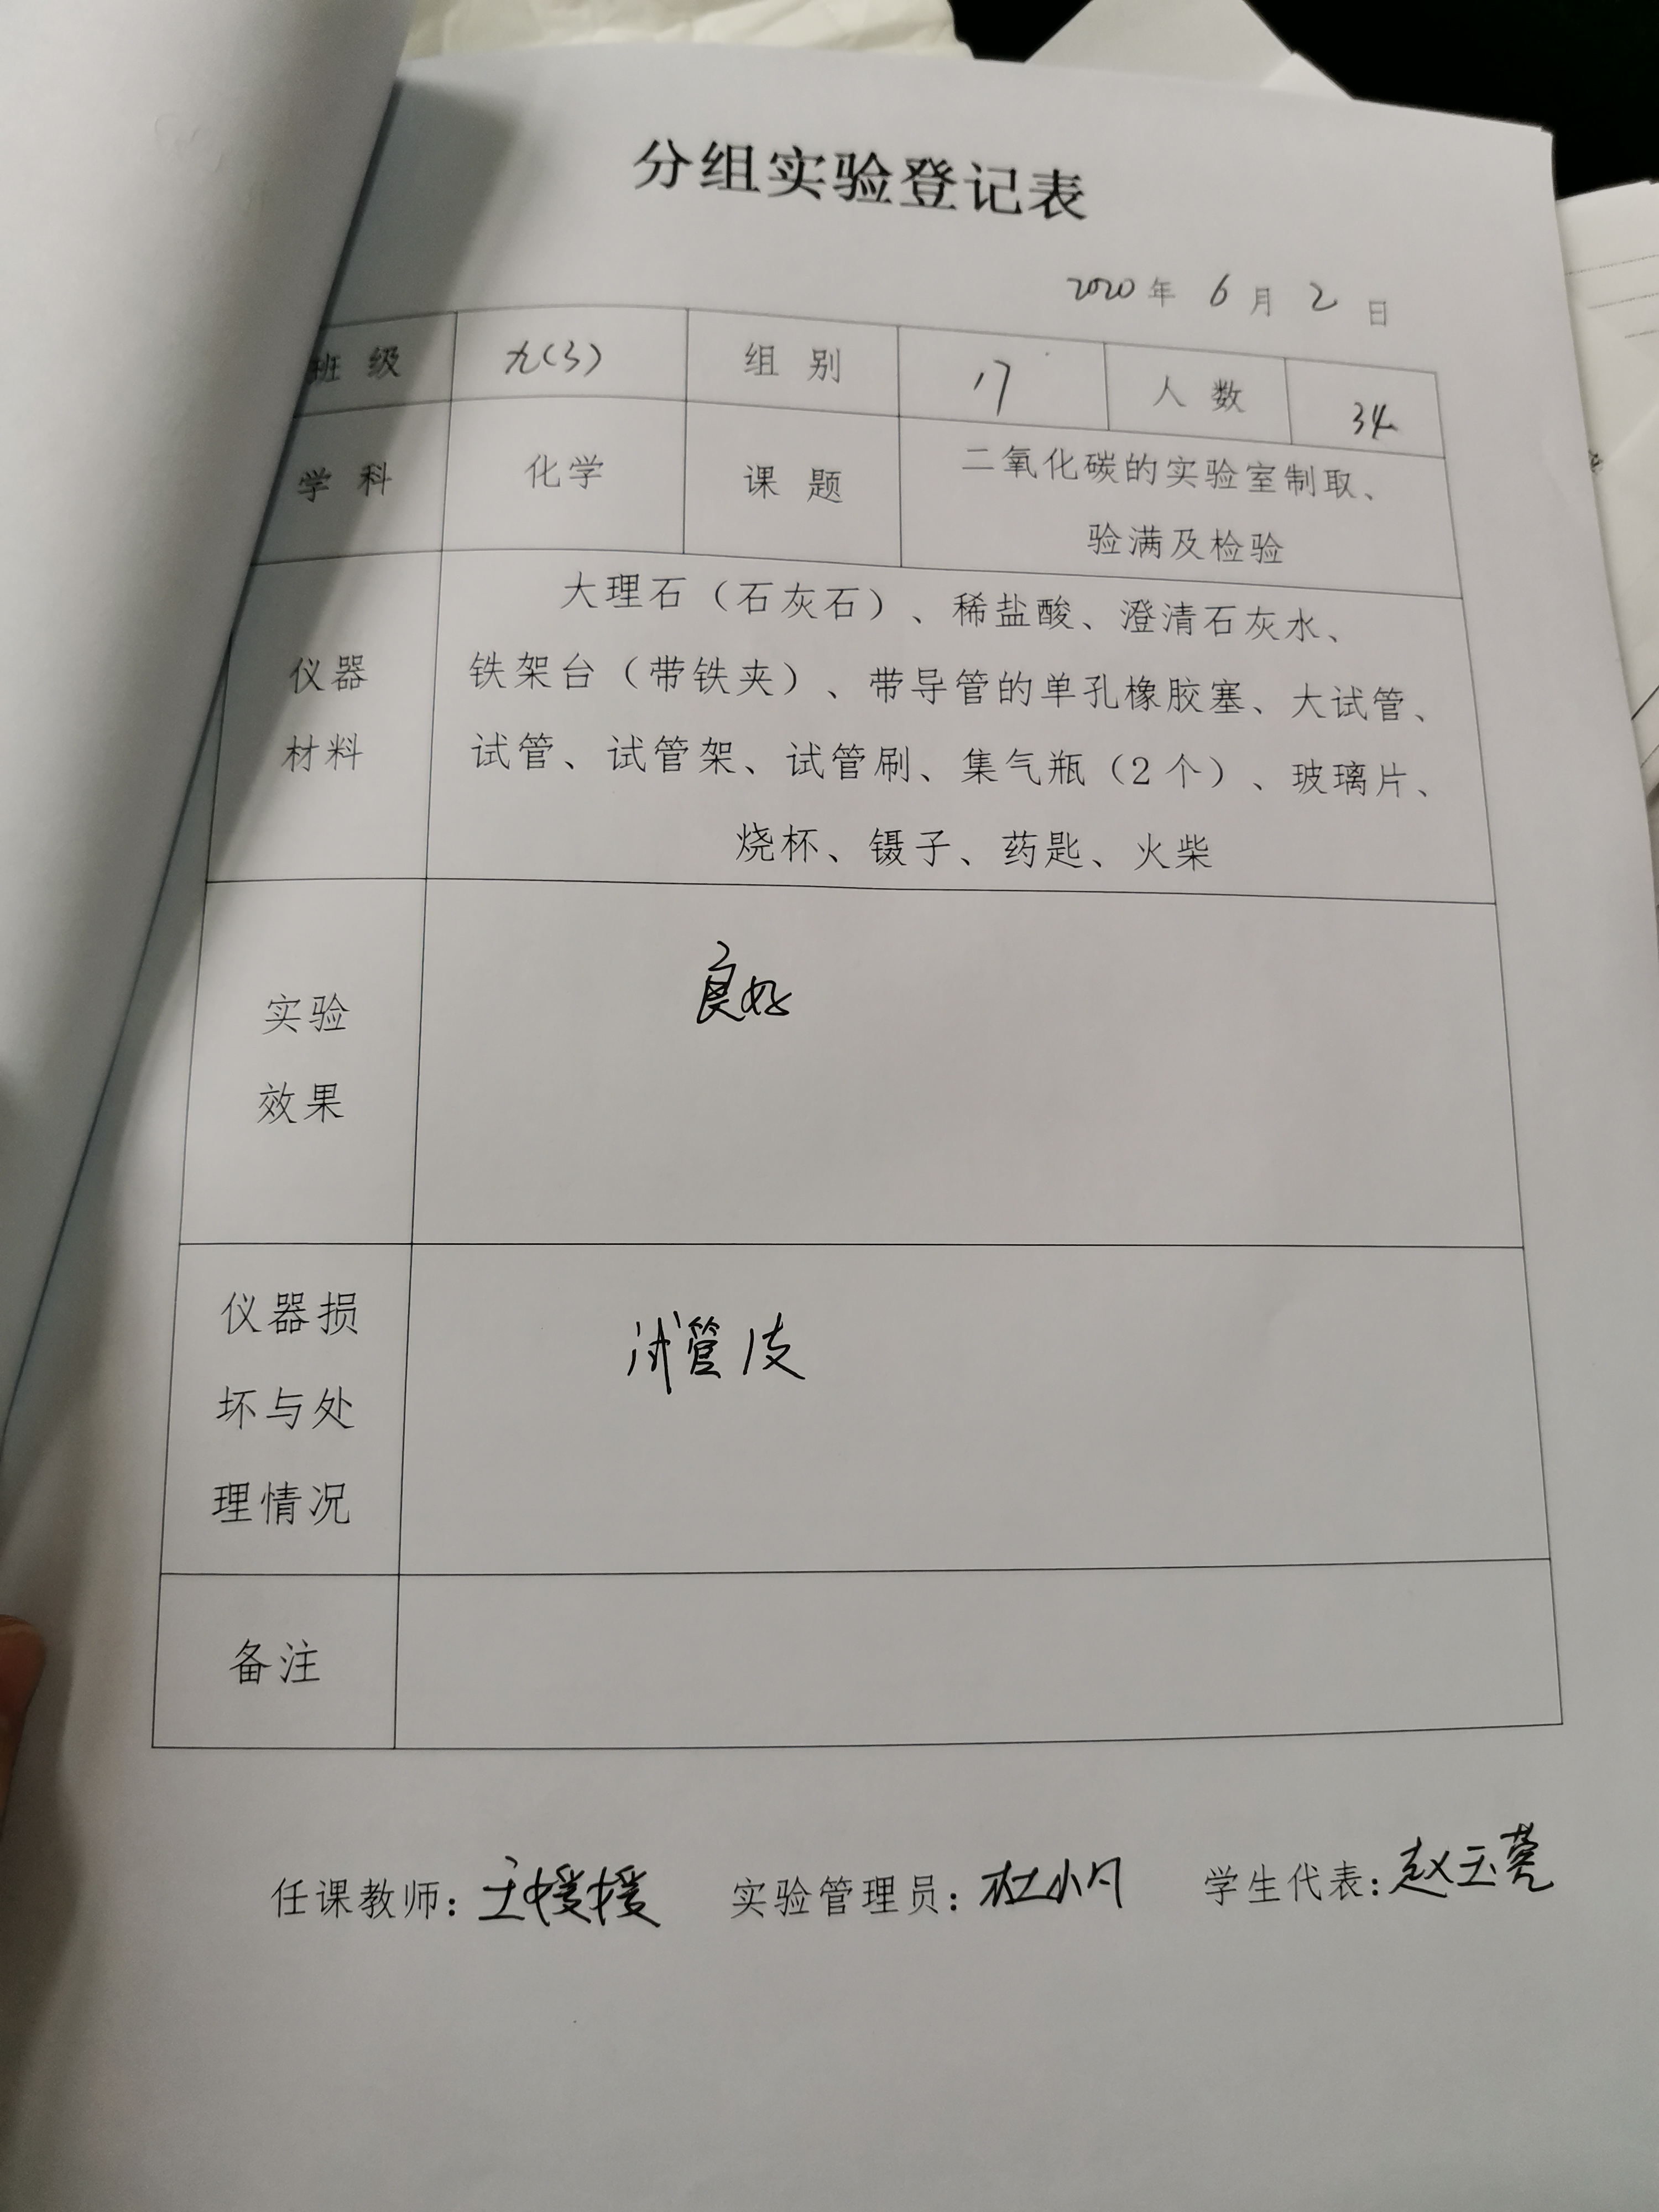 分组实验登记表
2020年 6月 2日
班级 九(3) 组别 17 人数 34
学科 化学 课题 二氧化碳的实验室制取、
验满及检验
大理石（石灰石）、稀盐酸、澄清石灰水、
仪器 铁架台（带铁夹）、带导管的单孔橡胶塞、大试管、
材料 试管、试管架、试管刷、集气瓶（2个）、玻璃片、
烧杯、镊子、药匙、火柴
良好
实验
效果
仪器损
试管1支
坏与处
理情况
备注
任课教师：王媛媛 实验管理员：杜小凡 学生代表：赵玉莞